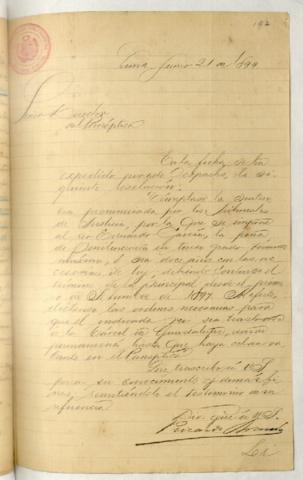 192
Lima, Junio 21 de 1899
Señor Director
del Panóptico
En la fecha se ha
expedido por este despacho la si-
guiente resolución:
"Cúmplase la senten-
cia pronunciada por los Tribunales
de Justicia, por la que se impone
al reo Ernesto la pena
de Penitenciaría en tercer grado, término
máximo, ó sea doce años con las ac-
cesorias de ley, debiendo contarse el
término de la principal desde el prime-
ro de de 1897.
las órdenes necesarias para
que el indicado reo sea trasladado
á la Cárcel de Guadalupe, donde
permanecerá hasta que haya celda va-
cante en el Panóptico."
Que trascribo á US.
para su conocimiento y demás fi-
nes, remitiéndole el testimonio de la
referencia.
Dios gue á US.
Ricardo